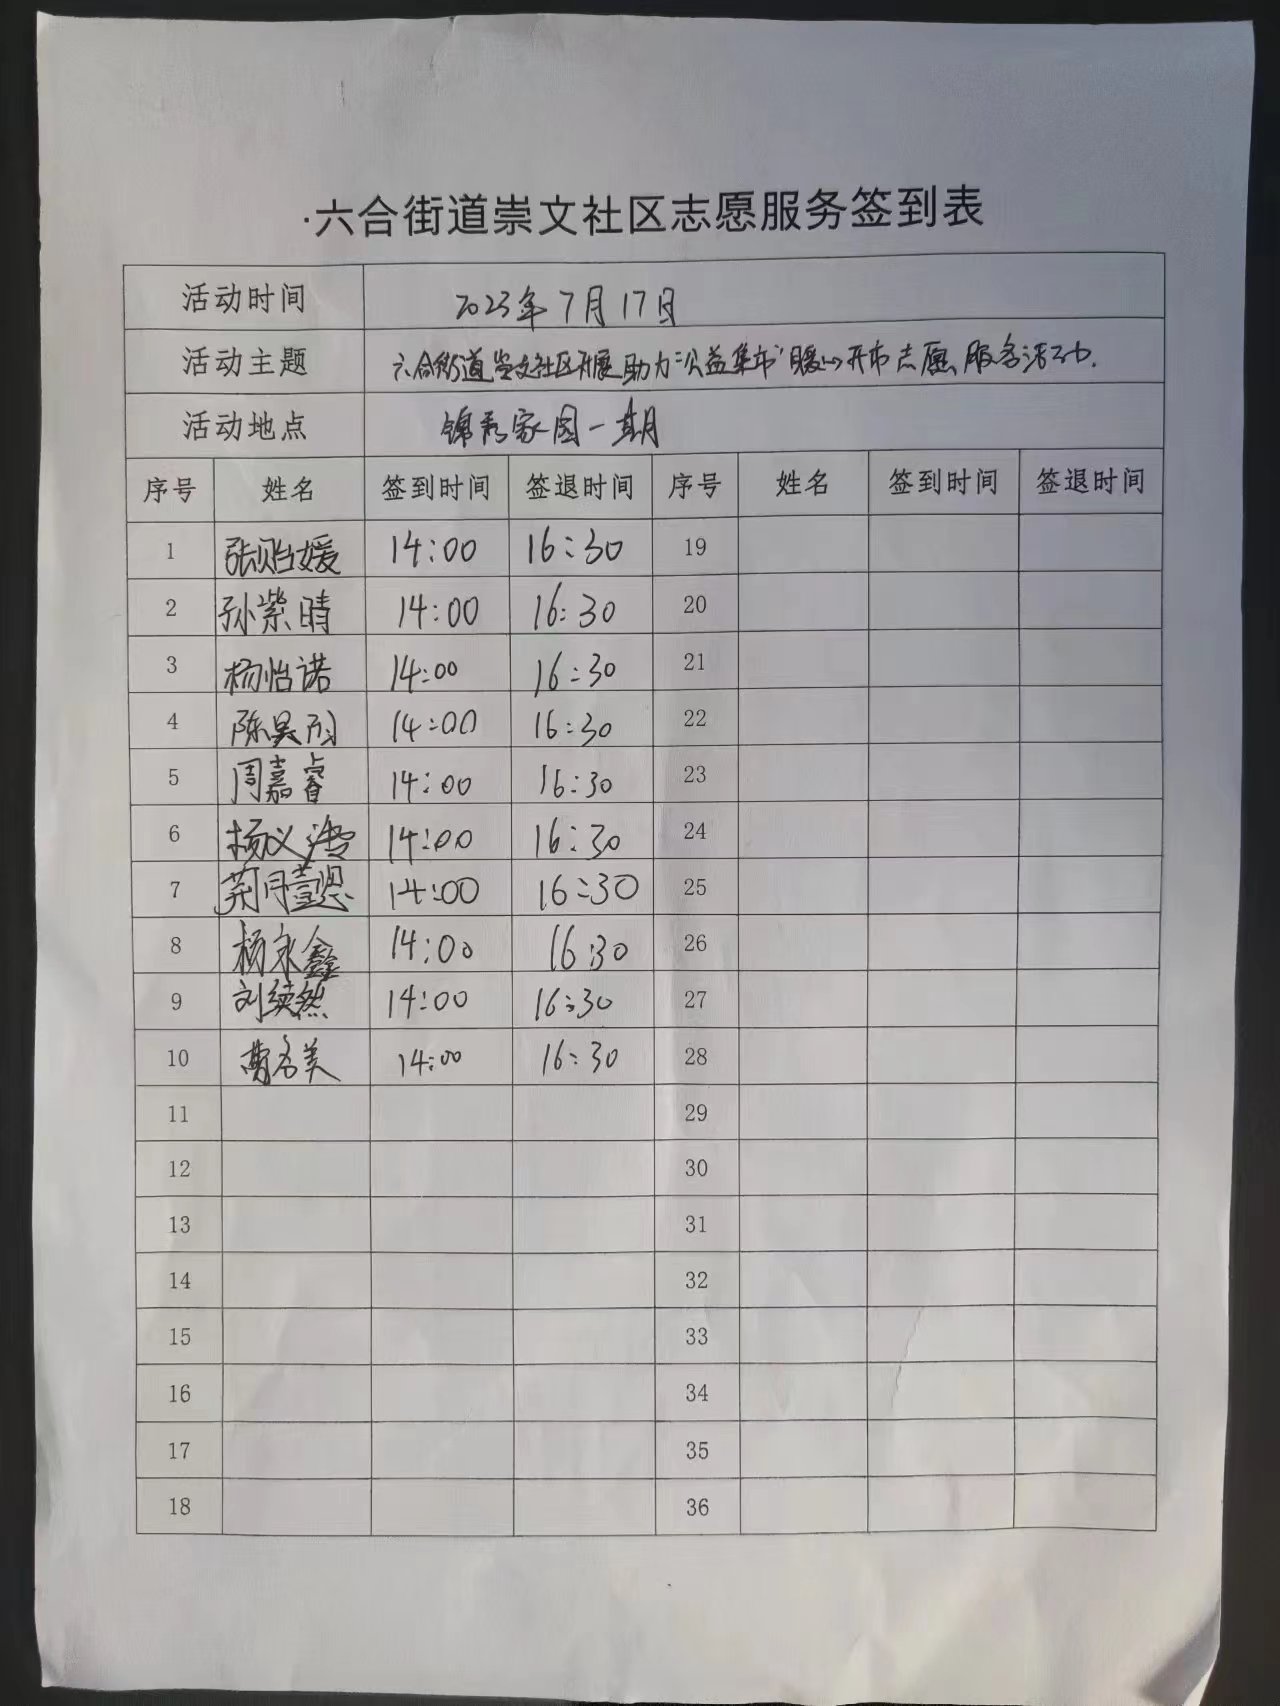 ·六合街道崇文社区志愿服务签到表
活动时间 2023年7月17日
活动主题 六合街道崇文社区开展助力"公益集市"暖心开市志愿服务活动.
活动地点 锦秀家园一期
序号 姓名 签到时间 签退时间 序号 姓名 签到时间 签退时间
1 张贻媛 14:00 16:30 19
2 孙紫晴 14:00 16:30 20
3 杨怡诺 14:00 16:30 21
4 陈昊雨 14:00 16:30 22
5 周嘉睿 14:00 16:30 23
6 杨义涛 14:00 16:30 24
7 14:00 16:30 25
8 杨永鑫 14:00 16:30 26
9 刘续然 14:00 16:30 27
10 14:00 16:30 28
11 29
12 30
13 31
14 32
15 33
16 34
17 35
18 36